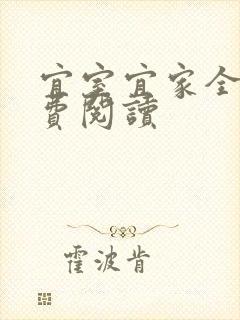 宜室宜家全
費閱讀
霍波肯